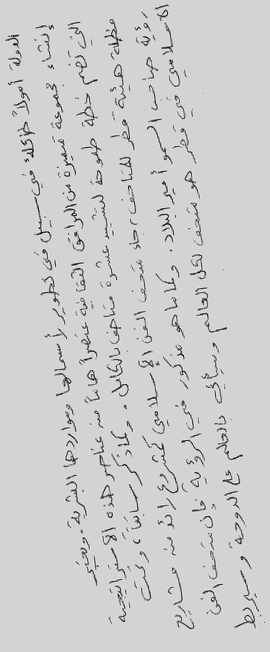 الدولة أموالاً طائلة في سبيل في تطوير رأسمالها ومواردها البشرية. ويعتبر
إنشاء مجموعة متميزة من المرافق الثقافية عنصراً هاماً من عناصر هذه الاستراتيجية
التي تضم خطة طموحة لتشييد عشرة متاحف بالكامل. وكما ذكر سابقاً، وتحت
مظلة هيئة قطر للمتاحف، جاء متحف الفن الإسلامي كمشروع رائد من مشاريع
رؤية صاحب السمو أمير البلاد. وكما هو مذكور في الرؤية فإن متحف الفن
الاسلامي في قطر هو متحف لكل العالم وسيأتي بالعالم على الدوحة وسيربط